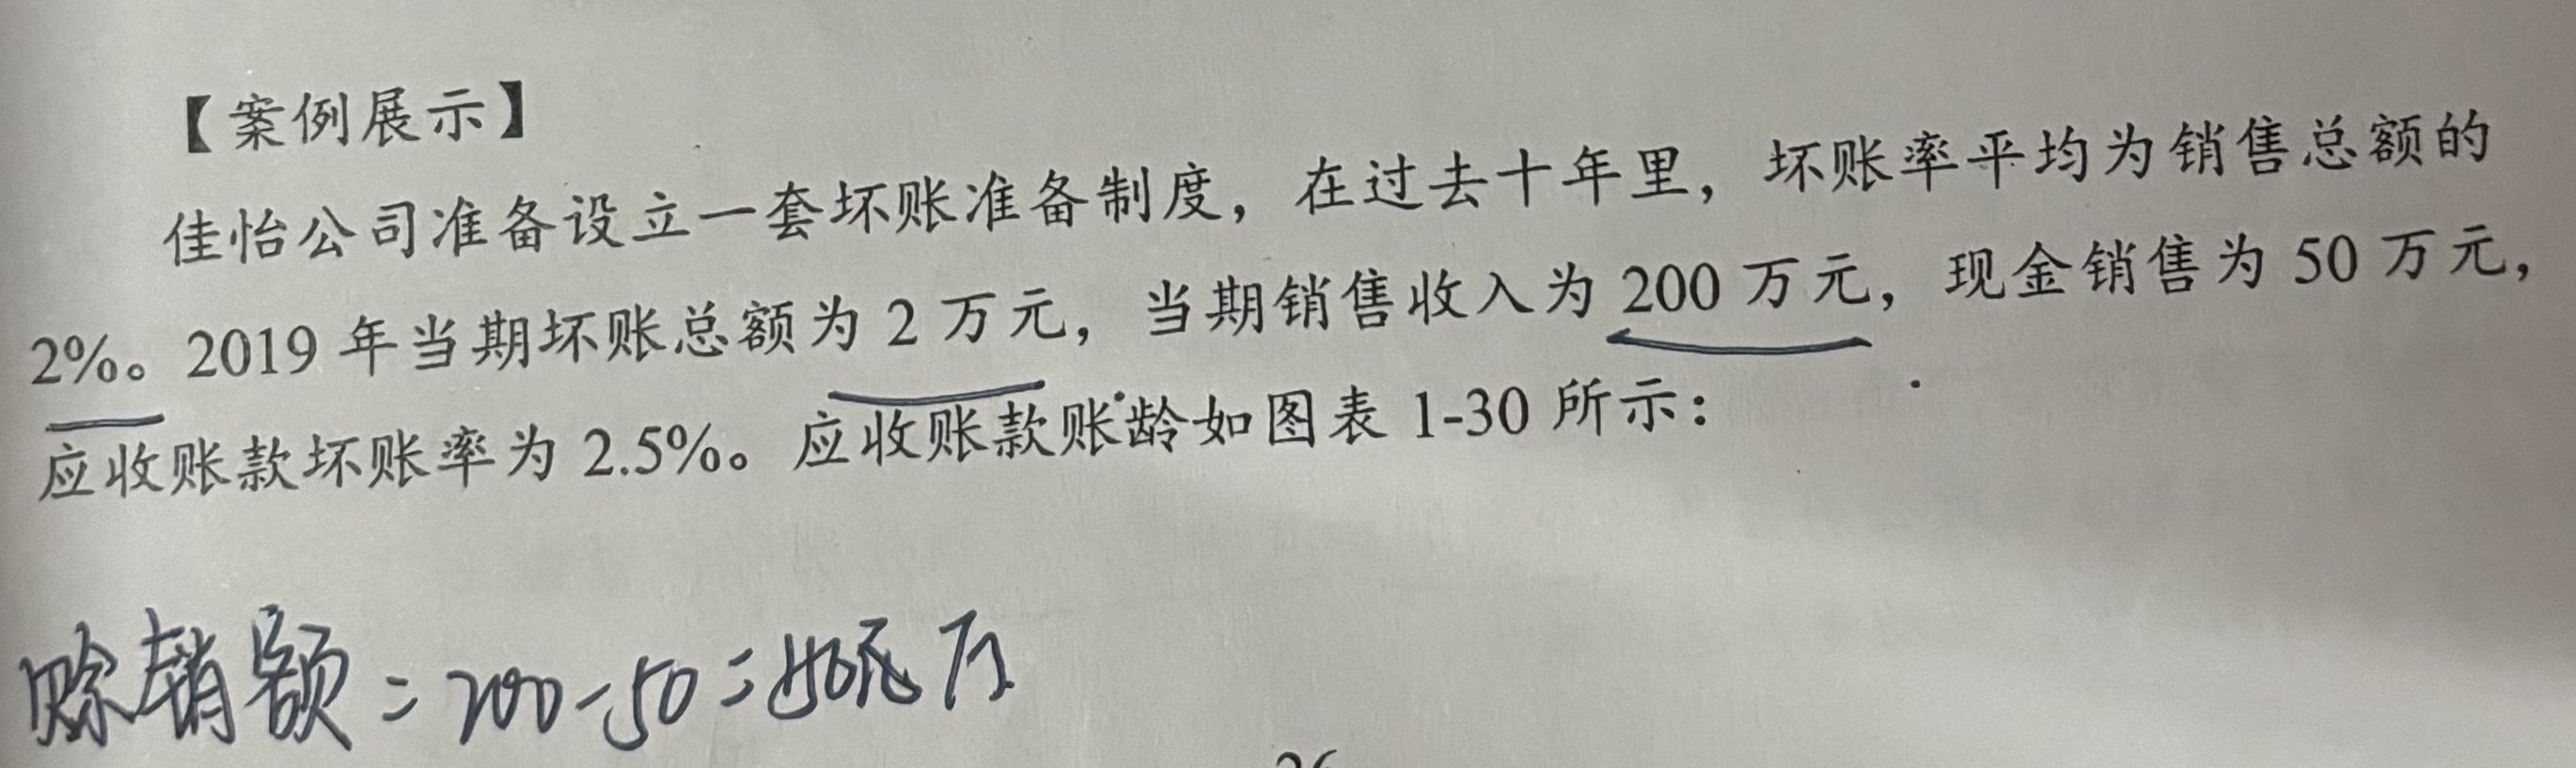 【案例展示】
佳怡公司准备设立一套坏账准备制度，在过去十年里，坏账率平均为销售总额的
2%。2019 年当期坏账总额为 2 万元，当期销售收入为 200 万元，现金销售为 50 万元，
应收账款坏账率为 2.5%。应收账款账龄如图表 1-30 所示：
赊销额 = 200-50 = 150 万